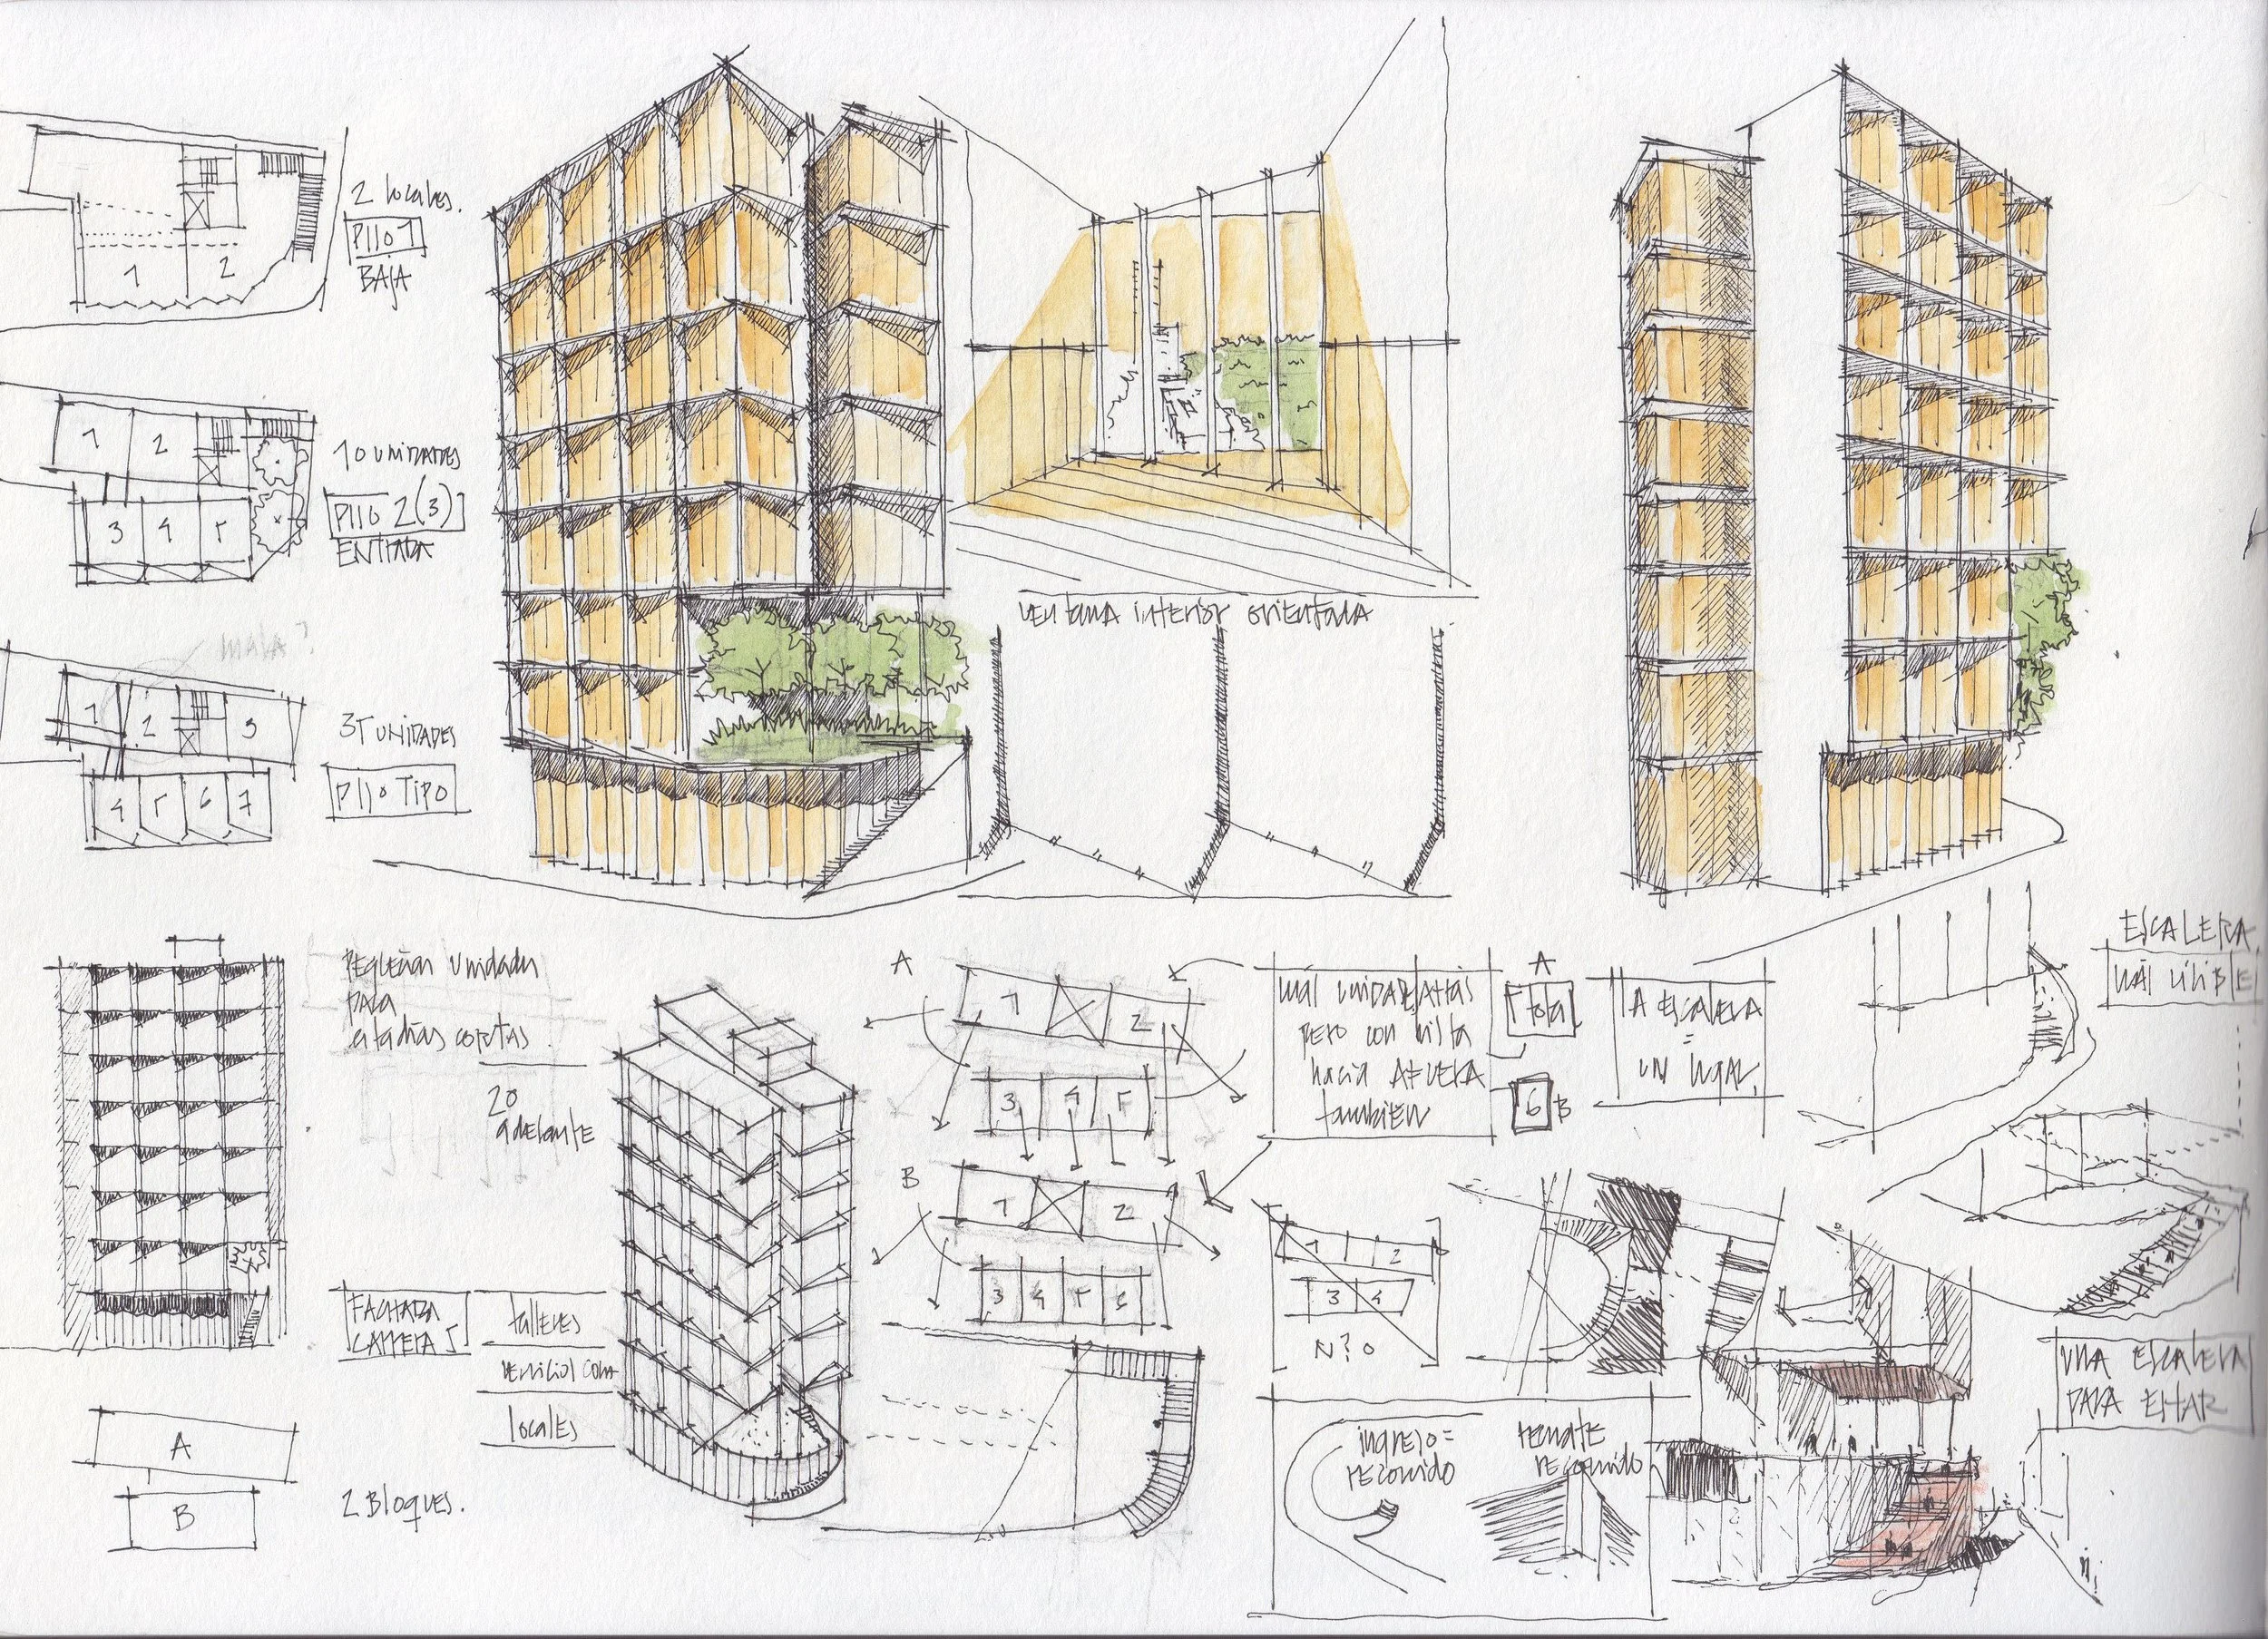 2 locales.
PISO 1
BAJA
1 2
10 UNIDADES
PISO 2(3)
ENTRADA
1 2
3 4 5
mala?
35 UNIDADES
PISO TIPO
1 2 3
4 5 6 7
ventana interior orientada
pequeñas unidades
para
estadías cortas.
20
adelante
FACHADA
CARRERA 5
talleres
servicios com
locales
A
B
2 Bloques.
A
1 2
3 4 5
B
1 2
3 4 5 6
más unidades atrás
pero con vista
hacia AFUERA
también
A
5 total
6 B
LA ESCALERA
=
UN lugar.
ESCALERA
MÁS VISIBLE
1 2
3 4
N?O
ingreso=
recorrido
remate
recorrido
UNA ESCALERA
PARA ESTAR